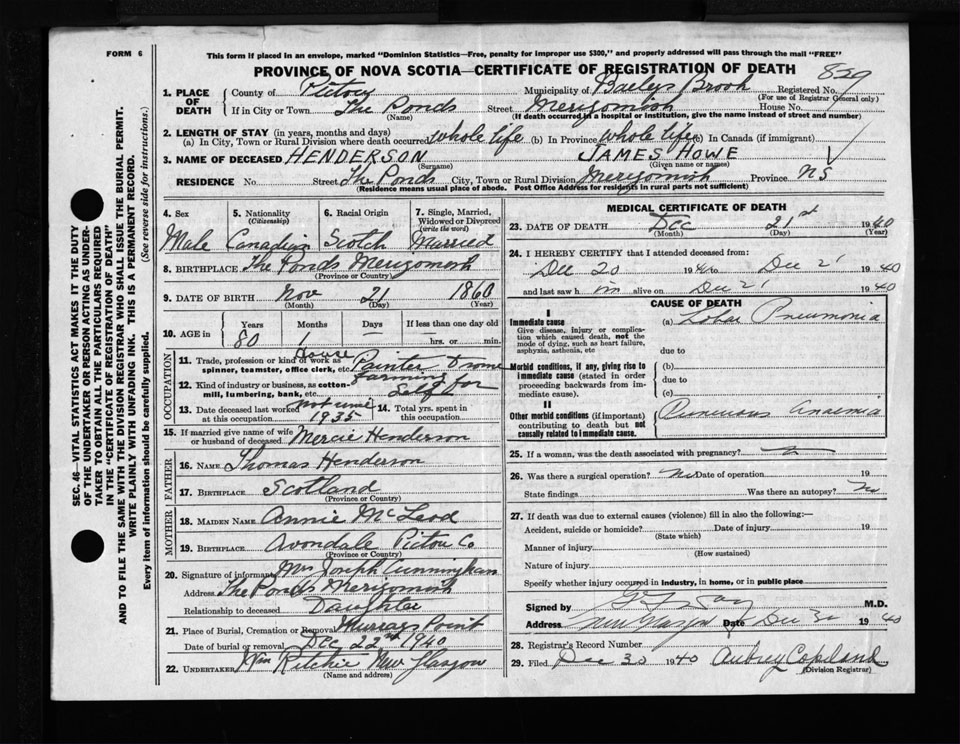 FORM 6
This form if placed in an envelope, marked "Dominion Statistics—Free, penalty for improper use $300," and properly addressed will pass through the mail "FREE"
PROVINCE OF NOVA SCOTIA—CERTIFICATE OF REGISTRATION OF DEATH
829
SEC. 46—VITAL STATISTICS ACT MAKES IT THE DUTY
OF THE UNDERTAKER OR PERSON ACTING AS UNDER-
TAKER TO OBTAIN ALL THE PARTICULARS REQUIRED
IN THE "CERTIFICATE OF REGISTRATION OF DEATH"
AND TO FILE THE SAME WITH THE DIVISION REGISTRAR WHO SHALL ISSUE THE BURIAL PERMIT.
WRITE PLAINLY WITH UNFADING INK. THIS IS A PERMANENT RECORD.
Every item of information should be carefully supplied. (See reverse side for instructions.)
1. PLACE OF DEATH
County of Pictou Municipality of Baileys Brook Registered No.
(For use of Registrar General only)
If in City or Town The Ponds Street Merigomish House No.
(Name) (If death occurred in a hospital or institution, give the name instead of street and number)
2. LENGTH OF STAY (in years, months and days)
(a) In City, Town or Rural Division where death occurred whole life (b) In Province whole life (c) In Canada (if immigrant)
3. NAME OF DECEASED HENDERSON JAMES HOWE
(Surname) (Given name or names)
RESIDENCE No. Street The Ponds City, Town or Rural Division Merigomish Province NS
(Residence means usual place of abode. Post Office Address for residents in rural parts not sufficient)
4. Sex
Male
5. Nationality
(Citizenship)
Canadian
6. Racial Origin
Scotch
7. Single, Married,
Widowed or Divorced
(write the word)
Married
8. BIRTHPLACE The Ponds Merigomish
(Province or Country)
9. DATE OF BIRTH Nov 21 1860
(Month) (Day) (Year)
10. AGE in
Years Months Days If less than one day old
80 1 — hrs. or min.
OCCUPATION
11. Trade, profession or kind of work as House Painter
spinner, teamster, office clerk, etc.
12. Kind of industry or business, as cotton- farming for
mill, lumbering, bank, etc. Self
13. Date deceased last worked not since
at this occupation 1935
14. Total yrs. spent in
this occupation
15. If married give name of wife
or husband of deceased Mercie Henderson
FATHER
16. NAME Thomas Henderson
17. BIRTHPLACE Scotland
(Province or Country)
MOTHER
18. MAIDEN NAME Annie McLeod
19. BIRTHPLACE Avondale Pictou Co
(Province or Country)
20. Signature of informant Mrs Joseph Cunningham
Address The Ponds Merigomish
Relationship to deceased Daughter
21. Place of Burial, Cremation or Removal Murrays Point
Date of burial or removal Dec 22nd 1940
22. UNDERTAKER Wm Ritchie New Glasgow
(Name and address)
MEDICAL CERTIFICATE OF DEATH
23. DATE OF DEATH Dec 21st 1940
(Month) (Day) (Year)
24. I HEREBY CERTIFY that I attended deceased from:
Dec 20 1940 to Dec 21 1940
and last saw him alive on Dec 21 1940
CAUSE OF DEATH
I
Immediate cause
Give disease, injury or complica-
tion which caused death, not the
mode of dying, such as heart failure,
asphyxia, asthenia, etc
(a) Lobar Pneumonia
due to
Morbid conditions, if any, giving rise to
immediate cause (stated in order
proceeding backwards from im-
mediate cause).
(b)
due to
(c)
II
Other morbid conditions (if important)
contributing to death but not
causally related to immediate cause.
Pernicious Anaemia
25. If a woman, was the death associated with pregnancy?
26. Was there a surgical operation? No Date of operation 19
State findings Was there an autopsy? No
27. If death was due to external causes (violence) fill in also the following:—
Accident, suicide or homicide? Date of injury 19
(State which)
Manner of injury
(How sustained)
Nature of injury
Specify whether injury occurred in industry, in home, or in public place
Signed by M.D.
Address New Glasgow Date Dec 30 1940
28. Registrar's Record Number
29. Filed Dec 30 1940 Aubrey Copeland
(Division Registrar)